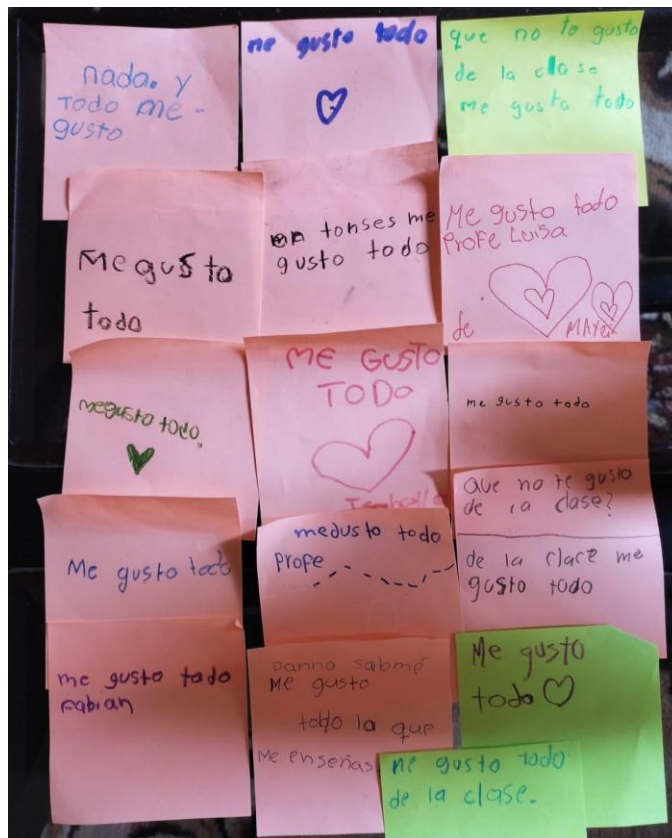 nada. y
Todo me -
gusto
me gusto todo
que no te gusto
de la clase
me gusto todo
Me gusto
todo
en tonses me
gusto todo
Me gusto todo
Profe Luisa
de
megusto todo.
ME GUSTO
TODO
Isabella
me gusto todo
Me gusto todo
medusto todo
Profe
Que no te gusto
de la clase?
de la clace me
gusto todo
me gusto todo
Fabian
Danna
Me gusto
todo la que
Me enseñas
Me gusto
todo
me gusto todo
de la clase.